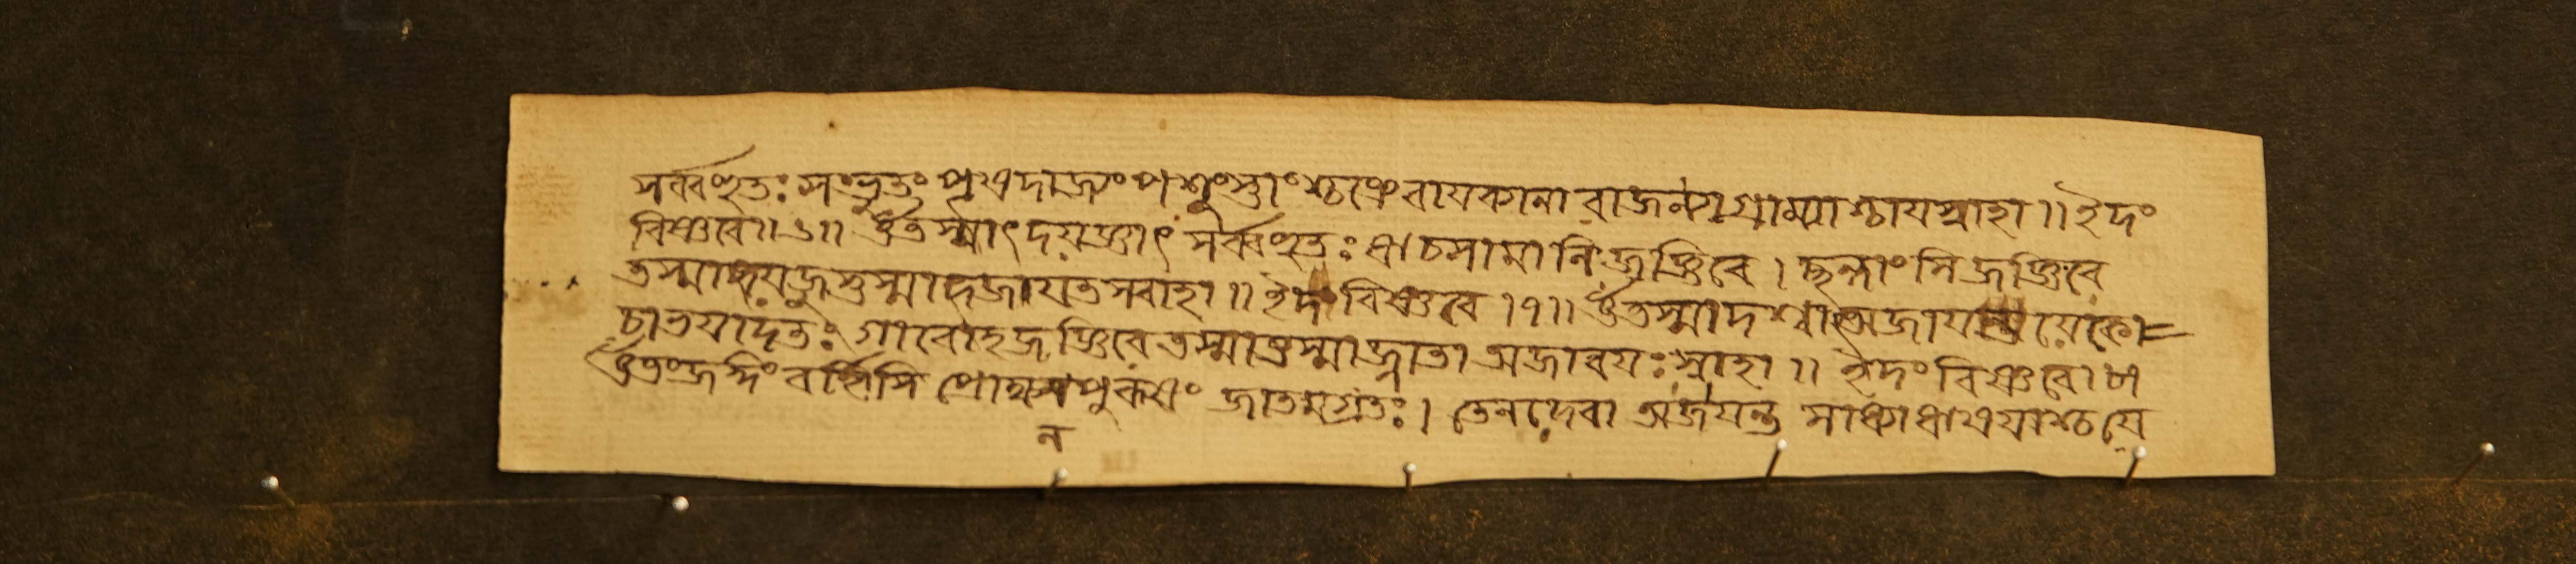 সর্ব্বহুতঃ সংভৃতং পৃষদাজ্যং পশুংস্তাংশ্চক্রে বায়ব্যানারাজন্যা গ্রাম্যাশ্চায স্বাহা ॥ ইদং
বিষ্ণবে ॥ ৬ ॥ ওঁ তস্মাৎ দযজ্ঞাৎ সর্ব্বহুতঃ ঋচসামানি জজ্ঞিরে । ছন্দাংসি জজ্ঞিরে
তস্মাদ্যজুস্তস্মাদজাযত সবাহা ॥ ইদং বিষ্ণবে ।৭॥ ওঁ তস্মাদশ্বা অজাযন্ত যেকো=
চাভযাদতঃ গাবোহ জজ্ঞিরে তস্মাত্তস্মাজ্জাতা অজাবযঃ স্বাহা ॥ ইদং বিষ্ণবে ৷ ৮
ওঁ তং জজ্ঞিং বর্হিসি প্রোক্ষ পুরুষং জাতমগ্রতঃ । তেন দেবা অজযন্ত সাধ্যা ঋষযাশ্চ যে
ন